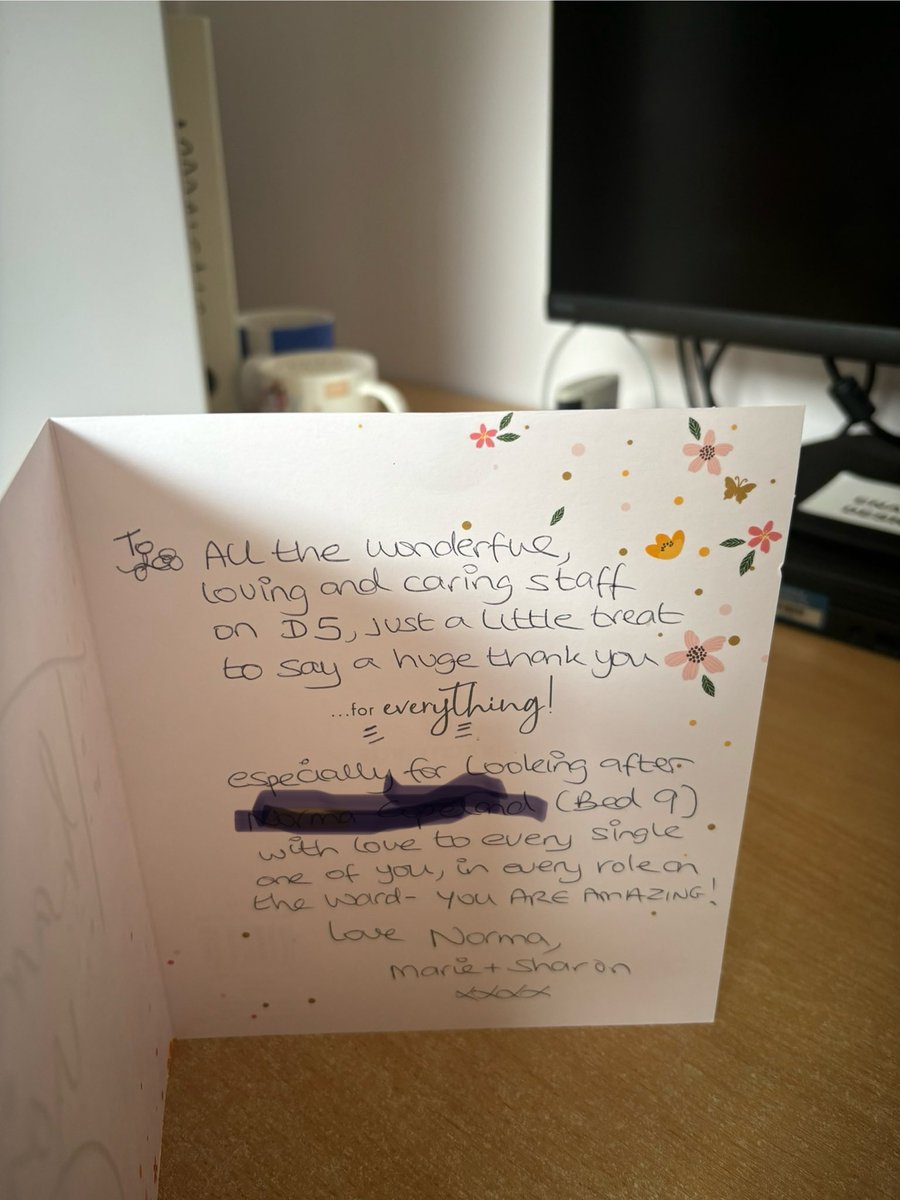 To All the wonderful,
loving and caring staff
on D5, just a little treat
to say a huge thank you
...for everything!
especially for looking after
(Bed 9)
with love to every single
one of you, in every role on
the ward- YOU ARE AMAZING!
Love Norma,
Marie + Sharon
xxxx